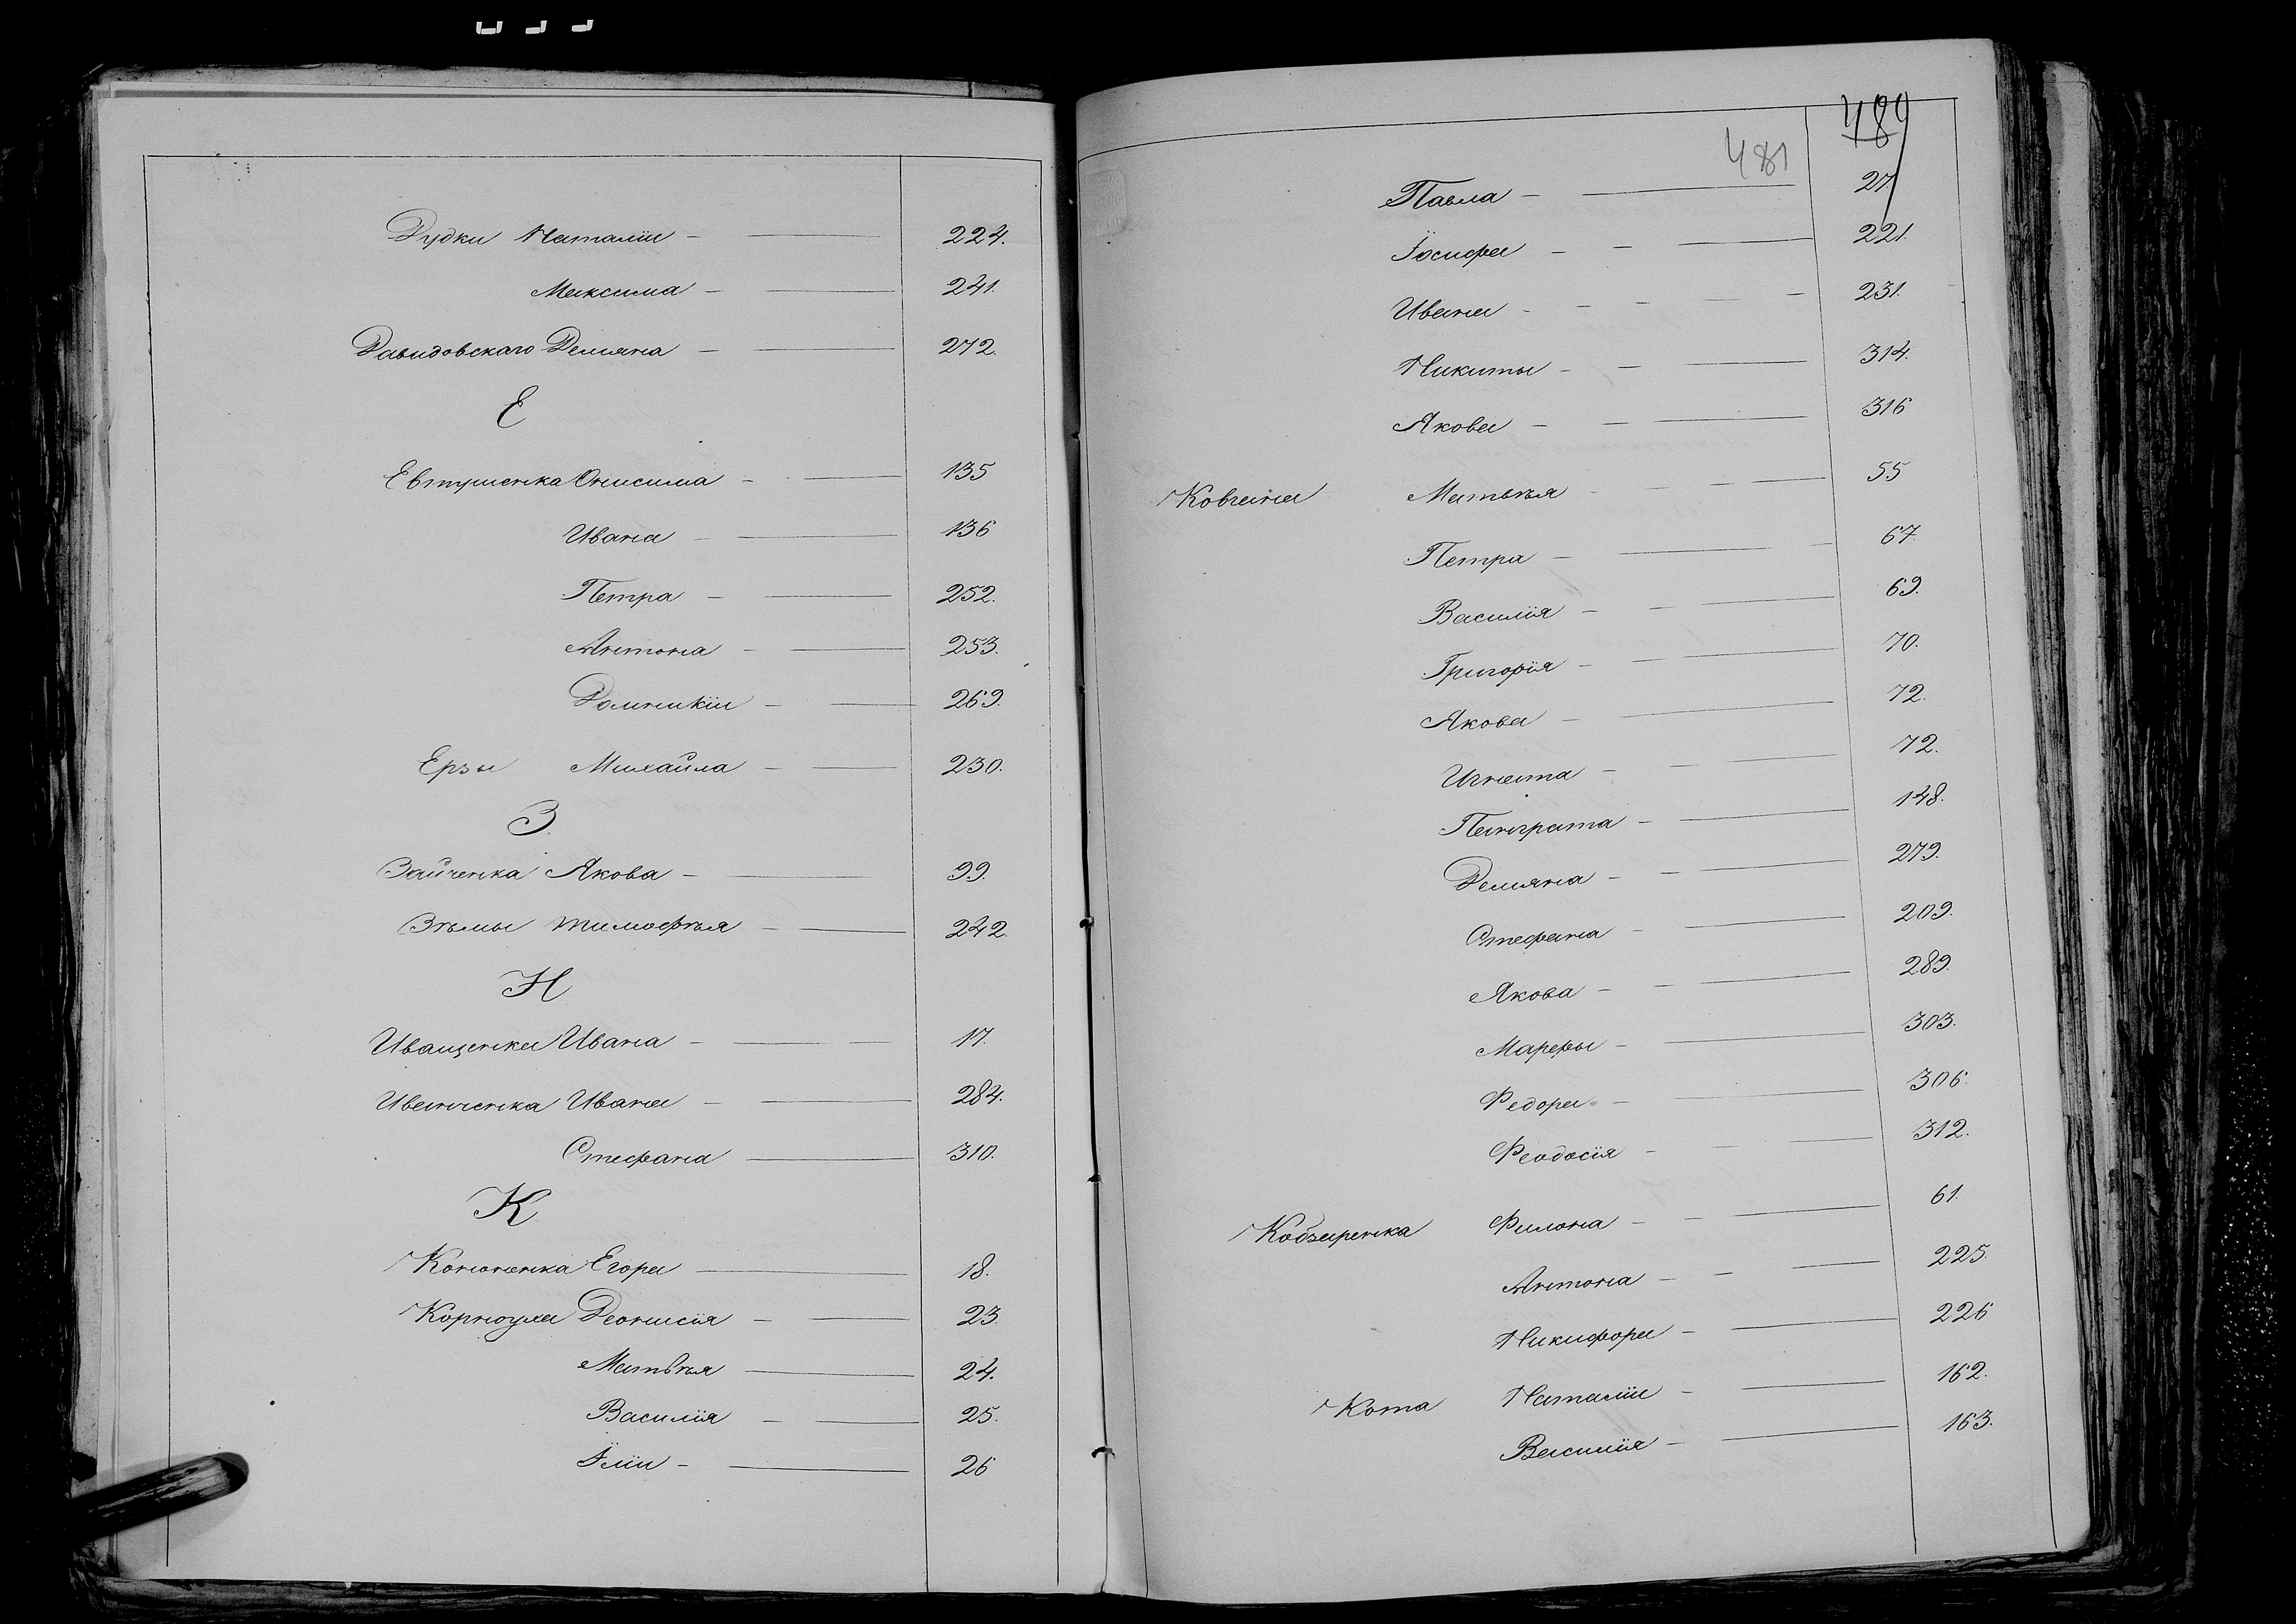 Дудки Наталіи — 224.
Максима — 241.
Давидовскаго Демяна — 272.
Е
Евтушенка Онисима — 135
Ивана — 136
Петра — 252.
Антона — 253.
Домникіи — 269.
Ерзы Михайла — 230.
З.
Зайченка Якова — 99.
Зѣмы Тимофѣя — 242.
И
Иващенка Ивана — 17.
Иванченка Ивана — 284.
Стефана — 310.
К
Кононенка Егора — 18.
Корноуха Деонисія — 23.
Матвѣя — 24.
Василія — 25.
Іліи — 26
489
481
Павла — 27.
Іосифа — 221.
Ивана — 231.
Никиты — 314.
Якова — 316
Ковгана Матвѣя — 55
Петра — 67.
Василія — 69.
Григорія — 70.
Якова — 72.
Игната — 72.
Панграта — 148.
Демяна — 279.
Стефана — 209.
Якова — 289.
Марфы — 303.
Федора — 306.
Феодосія — 312.
Кобзаренка Филона — 61.
Антона — 225.
Никифора — 226
Кота Наталіи — 162.
Василія — 163.